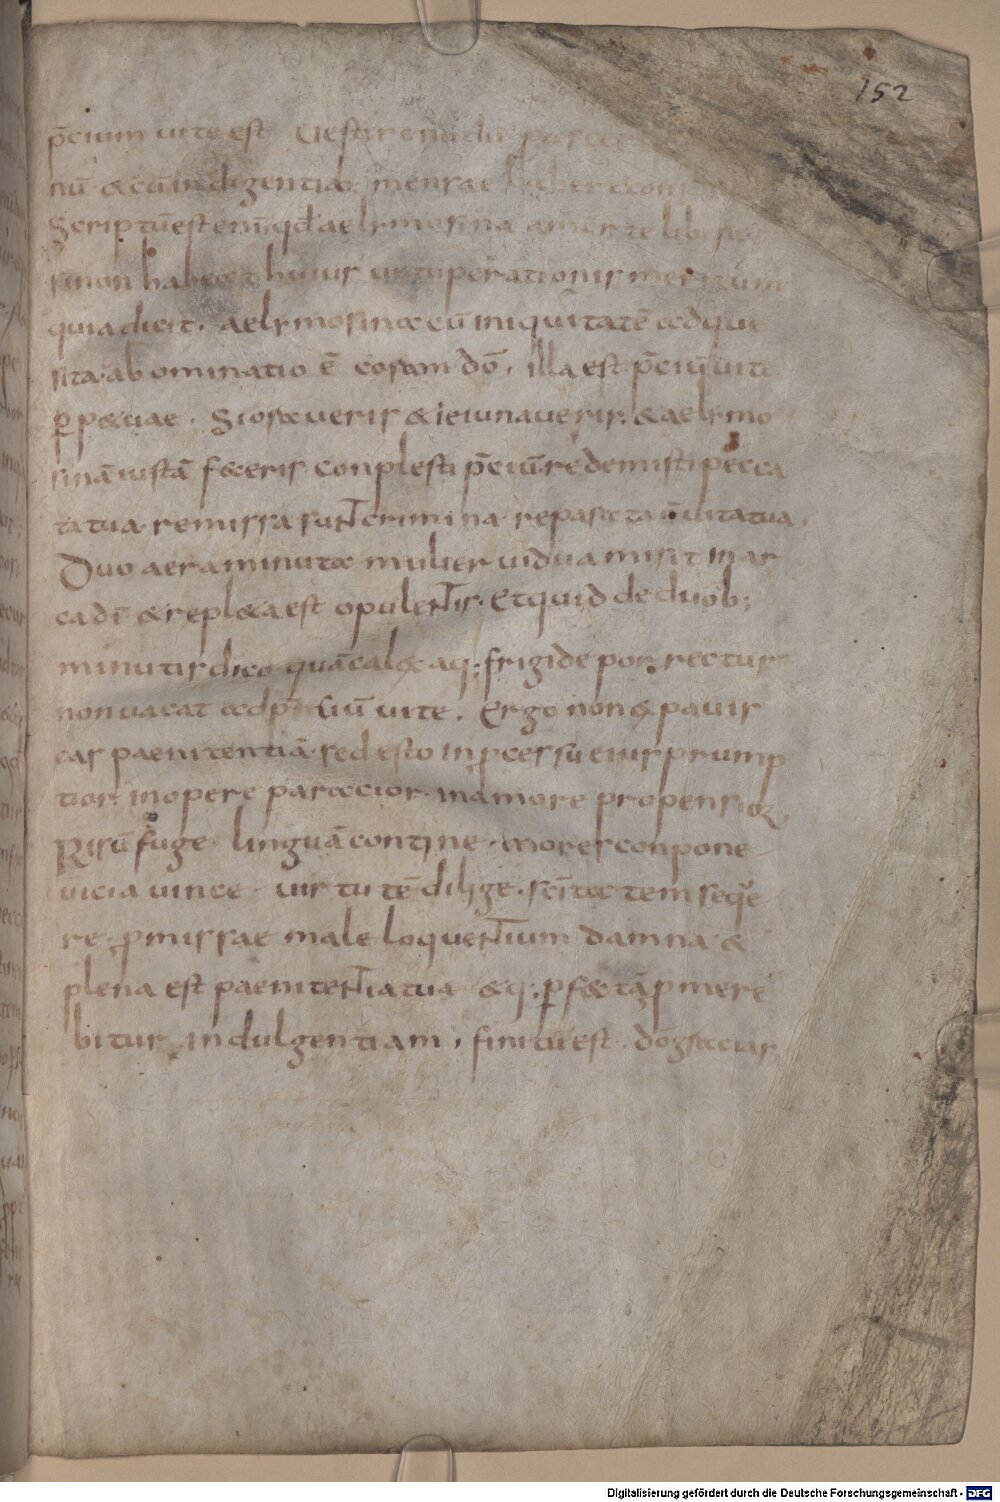 152
p̄cium uite est Uesti
nū & cū indigentia mensae
Scriptū est enī qđ aelymosina a morte liber
si non habe& huius uituperationis meritum
quia dicit. aelymosina cū iniquitatē adqui
sita abominatio ē coram dō. illa est p̄ciū uite
ꝑp&uae. Si oraueris & ieiunaueris. & aelymo
sinā iustā feceris conplesti p̄ciū redemisti pecca
ta tua. remissa sunt crimina reparata ē uita tua.
Duo aera minuta mulier uidua misit in ar
ca dei & repl&a est opulentis. Et quid de duob;
minutis dico quā calix aq; frigide porrectus
non uacat ad p̄ciū uite. Ergo non expauis
cas paenitentiā. sed esto in ꝓcessū eius prump
tior. in opere paratior. in amore propensior.
Risū fuge linguā contine. mores conpone
uicia uince uirtutē dilige. scītatem seque
re. ꝓmissae male loquentium damna &
plena est paenitentia tua & q; ꝑfecta ꝓmere
bitur indulgentiam. finitū est. dō gracias
Digitalisierung gefördert durch die Deutsche Forschungsgemeinschaft - DFG